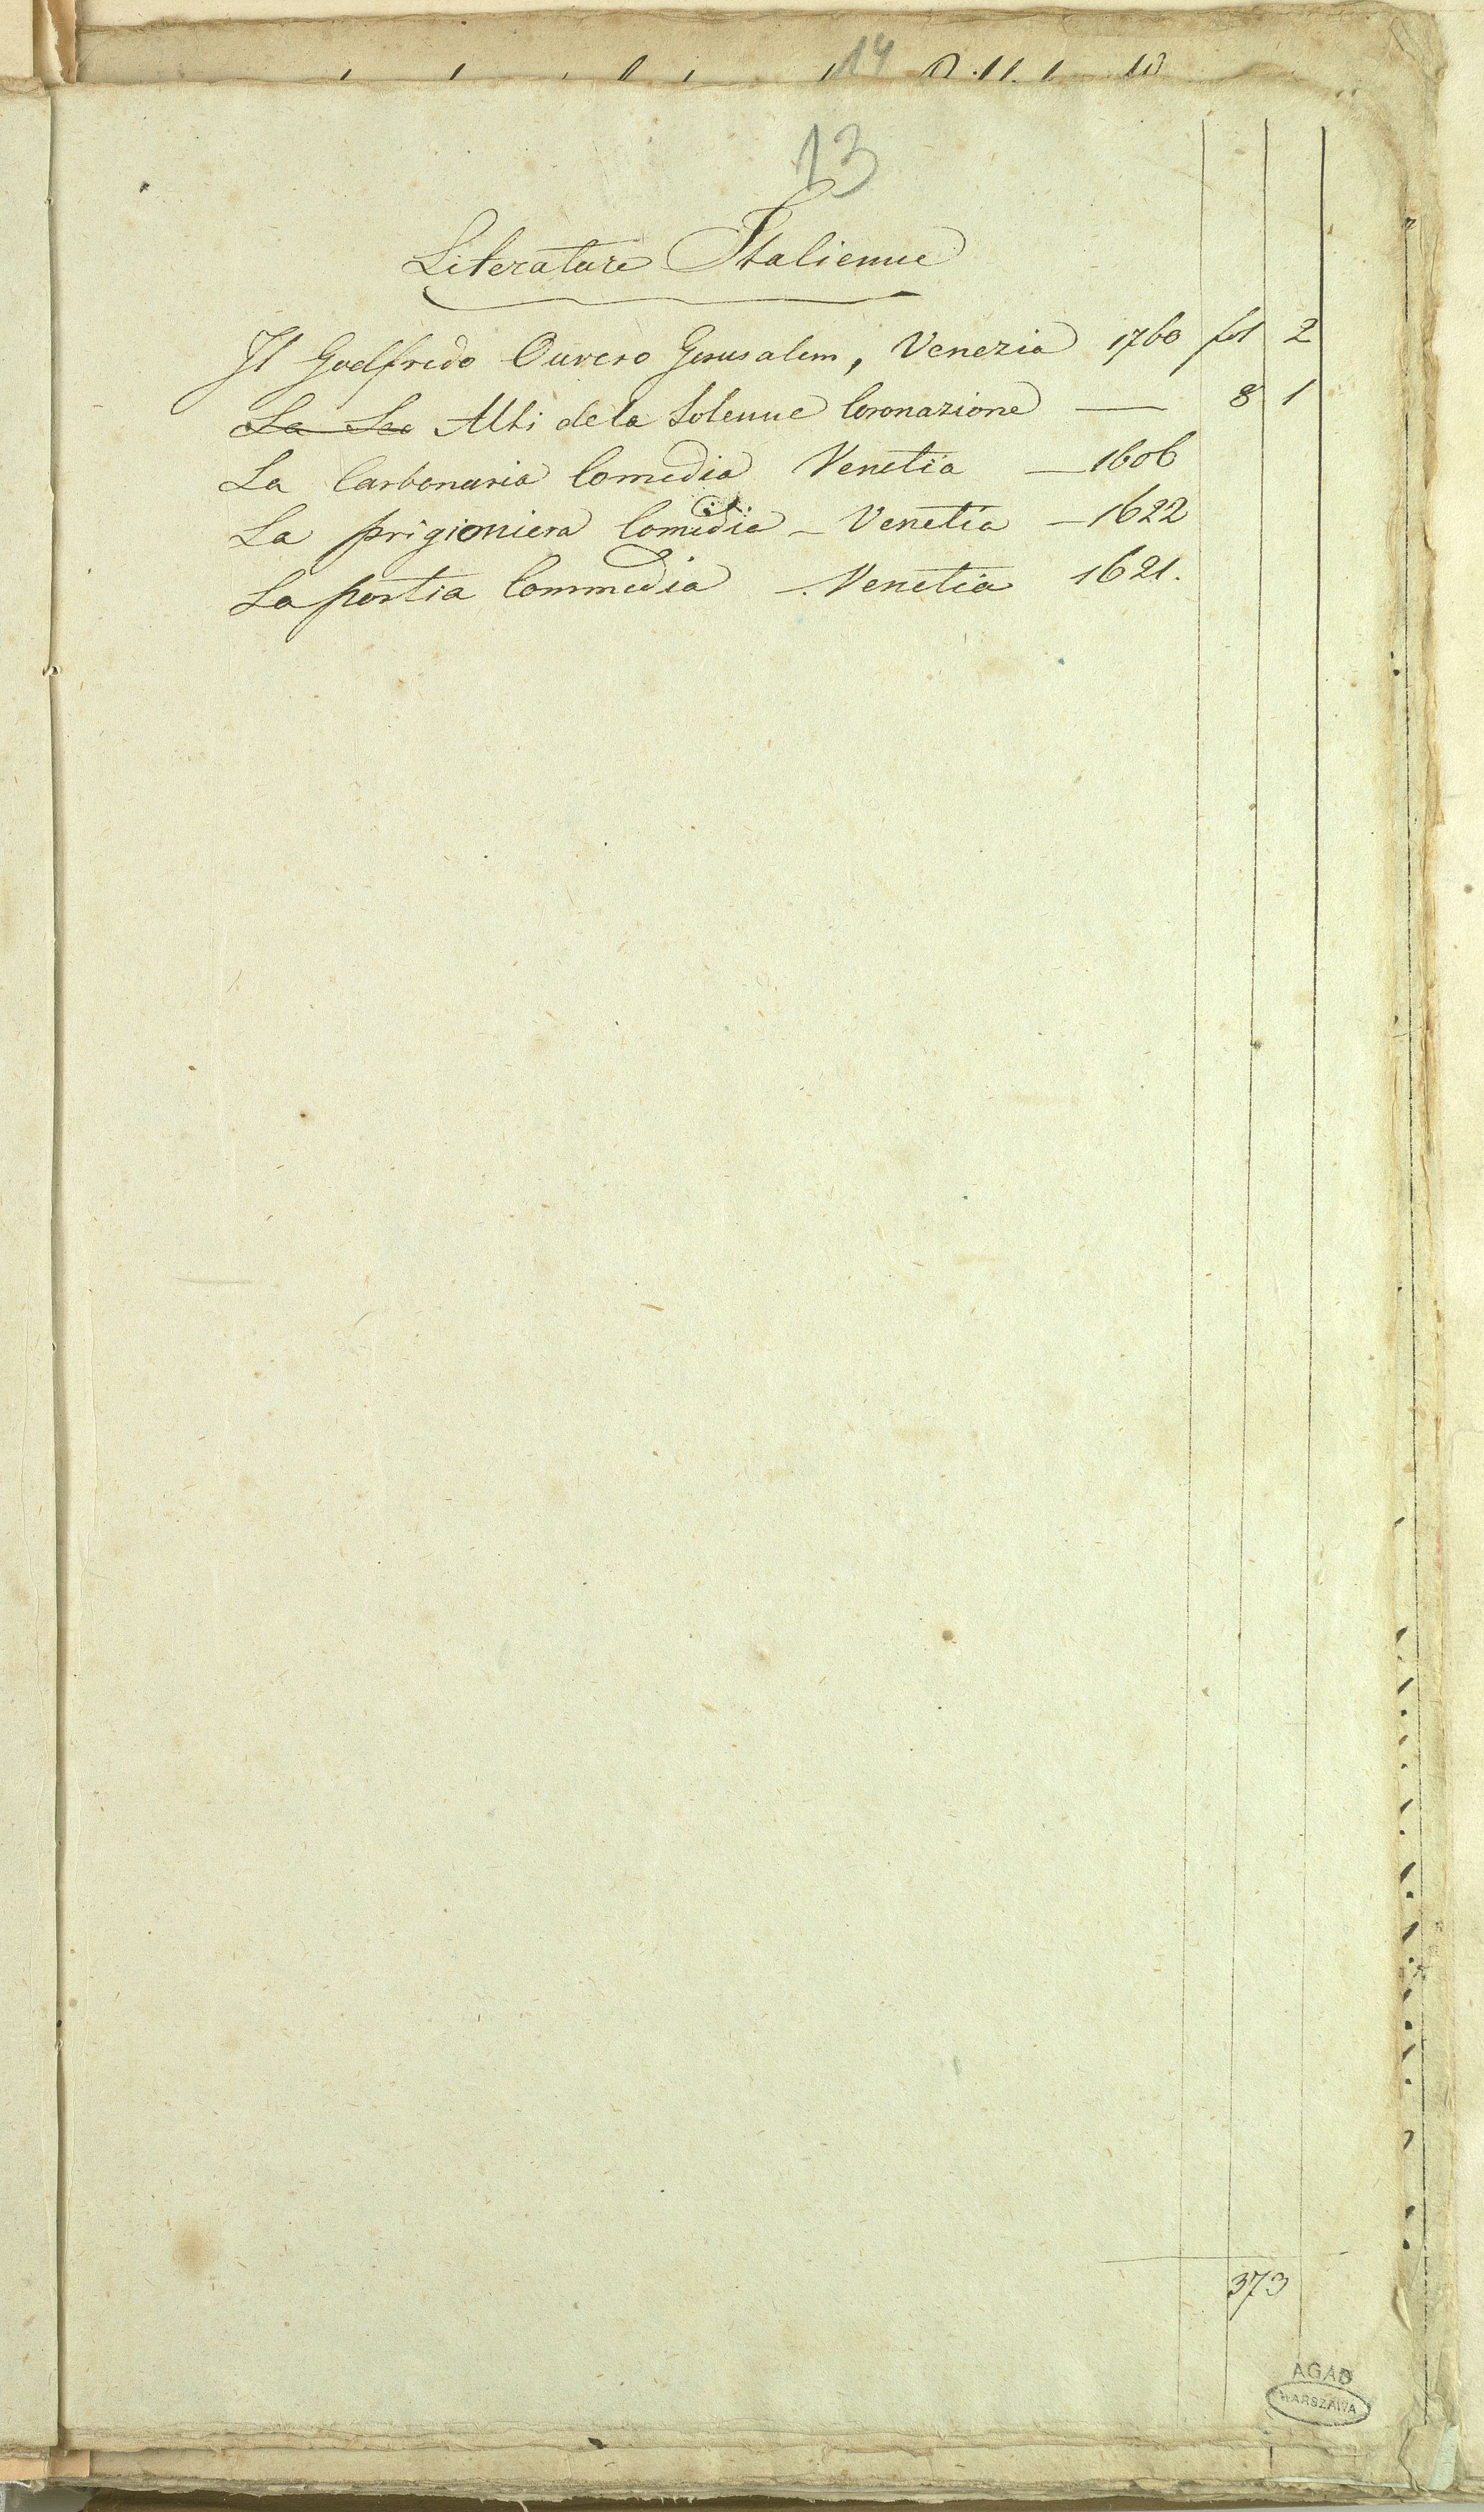 14
13
Literature Italienne
Il Goelfredo Ouvero Gerusalem, Venezia 1760 fol 2
La Atti dela Solenne Coronazione — 8 1
La Carbonaria Comedia Venetia — 1606
La prigioniera Comedia – Venetia – 1622
La portia Commedia – Venetia 1621.
373
AGAD
WARSZAWA